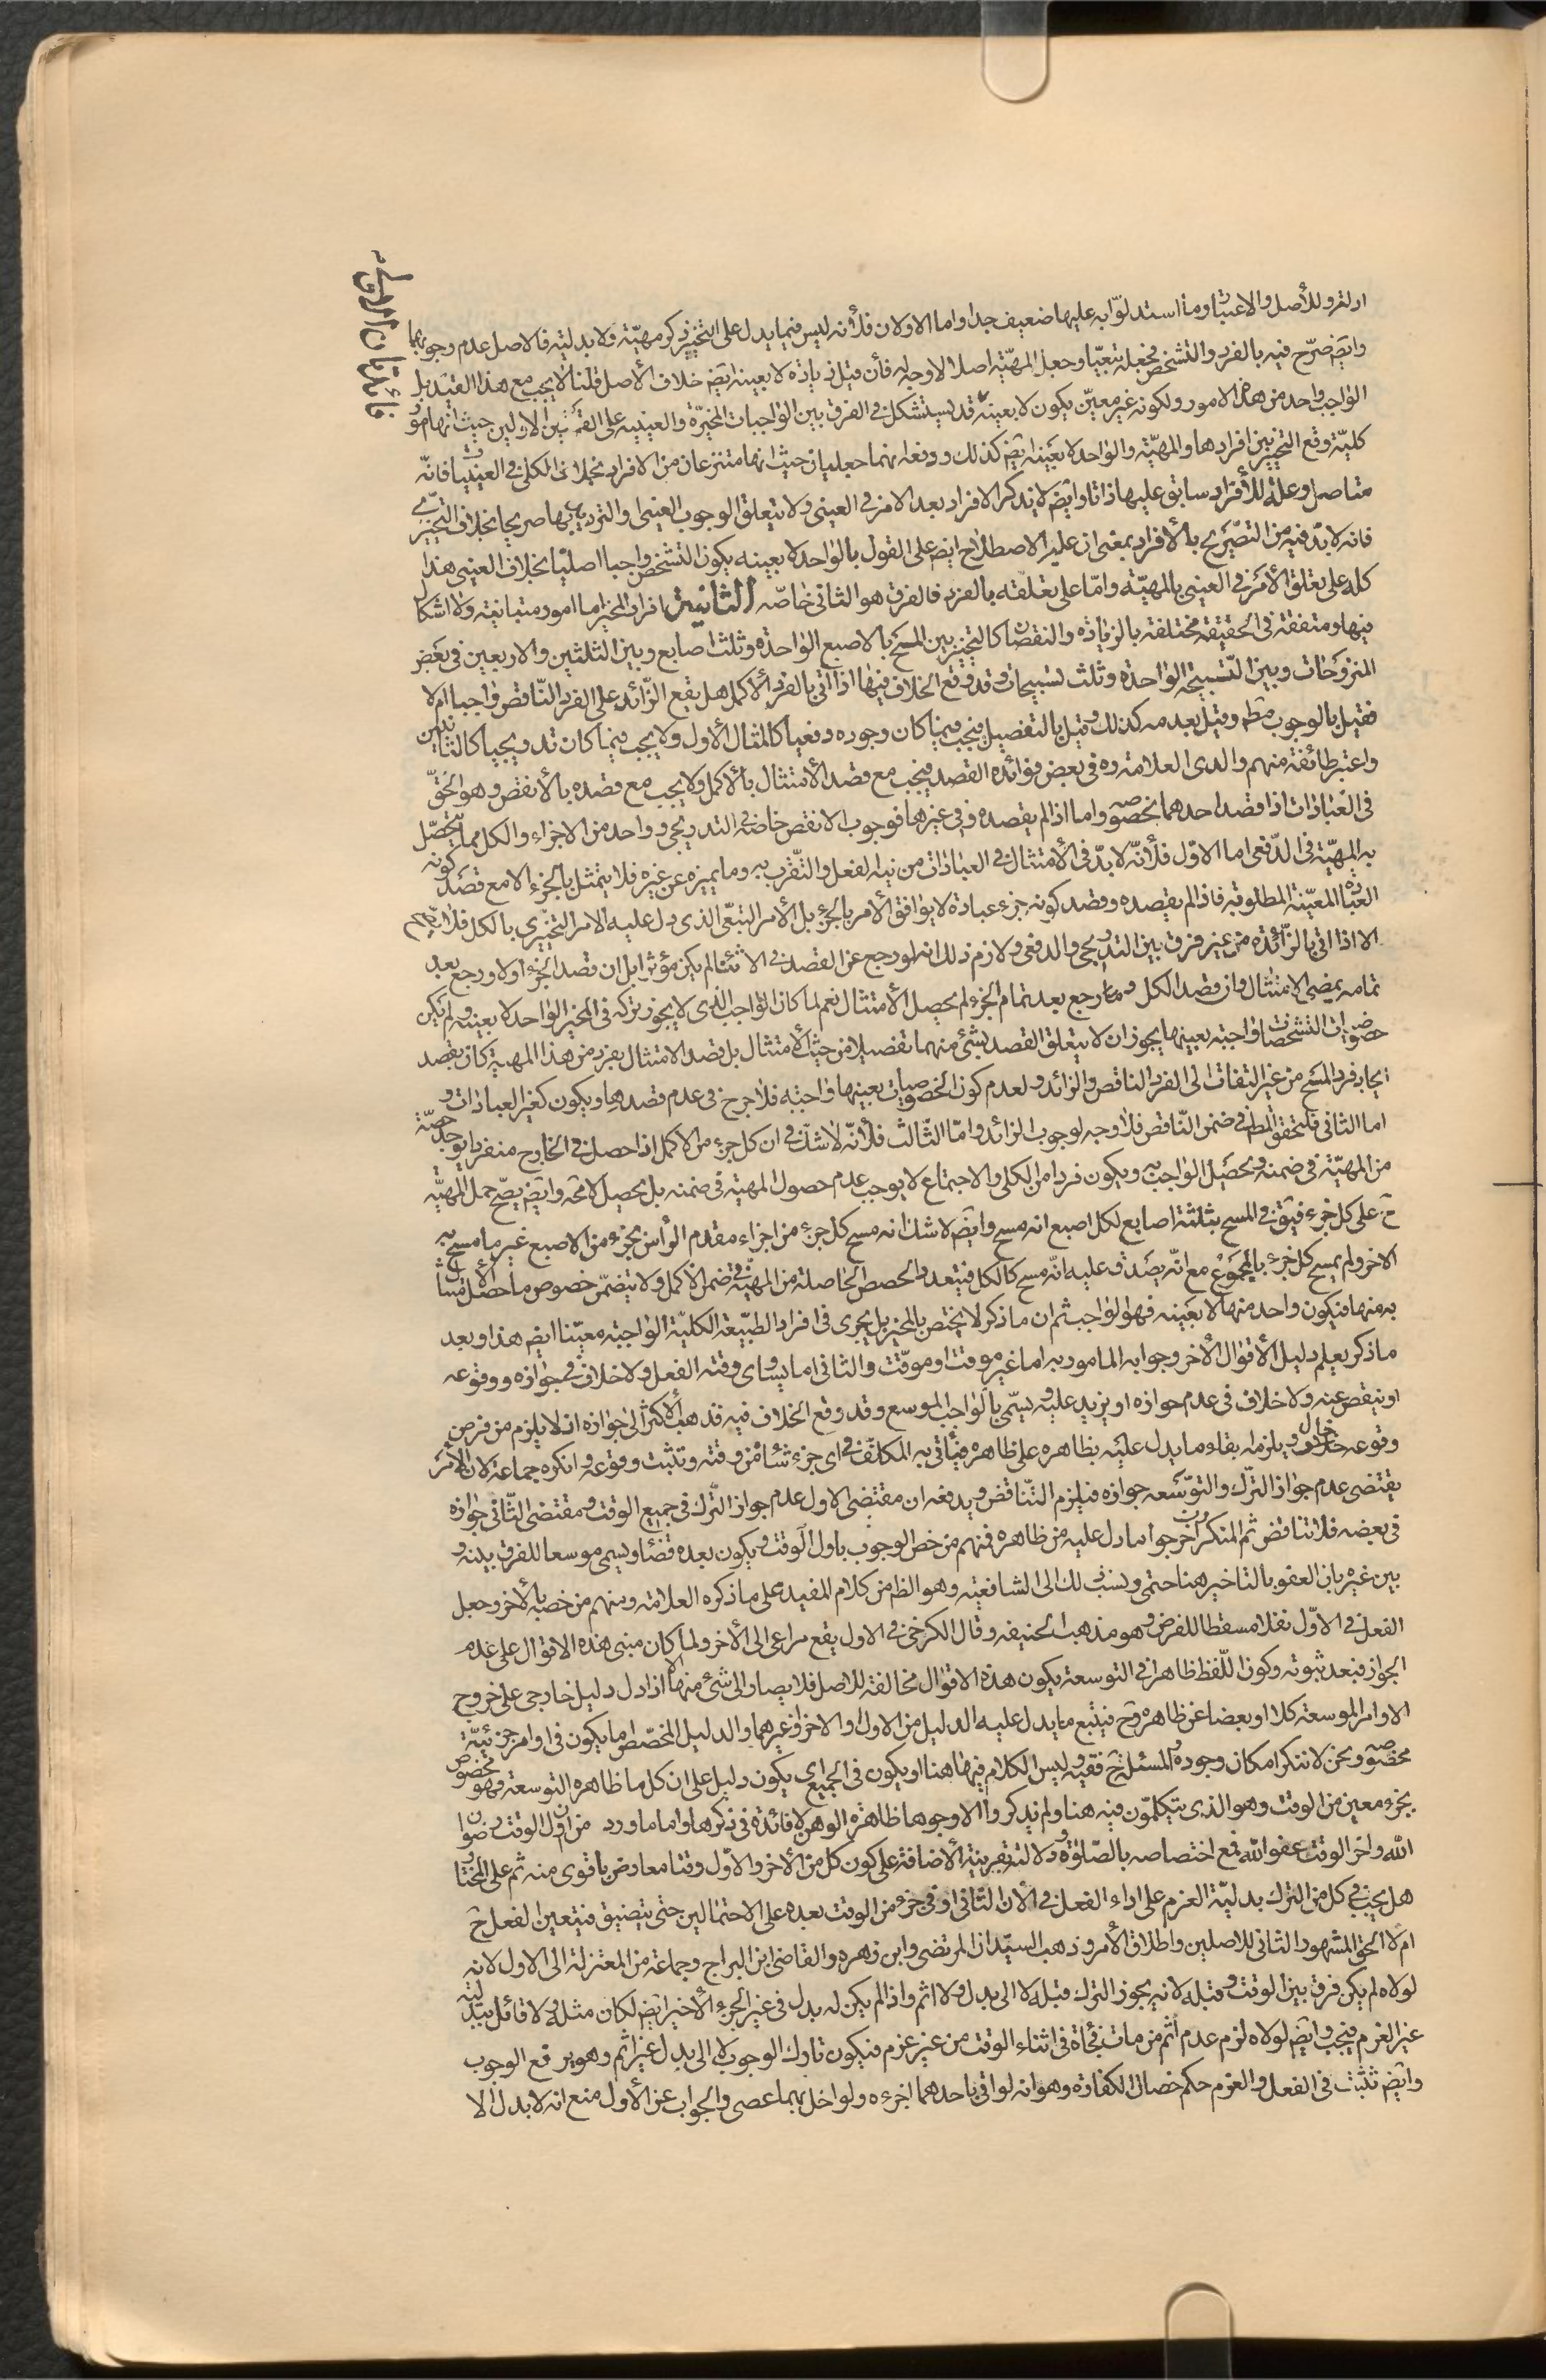 ادلته وللأصل والاعتبار وما استدلّوا به عليها ضعيف جدا واما الاولان فلأنه ليس فيما يدل على التخيير ذكر مهيّة ولا بدليّة فالاصل عدم وجوبهما
وايضا صرّح فيه بالفرد والتشخص فجعله تبعيّا وجعل المهيّة اصلا لاوجه له فأن قيل زيادة لا بعينه ايضا خلاف الأصل قلنا لا يجب مع هذا القيد بل
الواجب واحد من هذه الامور ولكونه غير معيّن يكون لا بعينه قد يستشكل في الفرق بين الواجبات المخيّرة والعينيه على القولين الاولين حيث انهما امور
كليّة وقع التخيير بين افرادها والمهيّة والواحد لا بعينه ايض كذلك ودفع انهما جعليان حيث انهما منتزعان من الافراد بخلاف الكلى في العينيات فانّه
متاصل وعلة للأفراد سابق عليها ذاتا وايض لا يذكر الافراد بعد الامر في العينى ولا يتعلق الوجوب العينى والترديدى بها صريحا بخلاف التخييرى
فانه لابد فيه من التصريح بالأفراد بمعنى ان عليه الاصطلاح ايض على القول بالواحد لا بعينه يكون التشخص واجبا اصليّا بخلاف العينى هذا
كله على تعلق الأمر في العينى بالمهيّة وامّا على تعلقه بالفرد فالفرق هو الثانى خاصّه الثانية افراد المخير اما امور متباينه ولا اشكال
فيها ومتفقة في الحقيقة مختلفة بالزيادة والنقصان كالتخيير بين المسح بالاصبع الواحدة وثلث اصابع وبين الثلثين والاربعين في بعض
المنزوحات وبين التسبيحه الواحدة وثلث تسبيحات وقد وقع الخلاف فيها اذا اتى بالفرد الاكمل هل يقع الزّائد على الفرد النّاقص واجبا ام لا
فقيل بالوجوب مط وقيل بعدمه كذلك وقيل بالتفصيل فيجب فيما كان وجوده دفعيا كالمثال الأول ولا يجب فيما كان تدريجيا كالثانيين
واعتبر طائفة منهم والدى العلامة ره في بعض فوائده القصد فيجب مع قصد الأمتثال بالأكمل ولا يجب مع قصده بالأنقص وهو الحقّ
في العبادات اذا قصد احدهما بخصوصه واما اذا لم يقصده وفي غيرها فوجوب الانقص خاصة في التدريجى وواحد من الاجزاء والكل مما يتحصّل
به المهيّة في الدّفعى اما الاول فلأنّه لابدّ في الأمتثال في العبادات من نية الفعل والتّقرب به وما يميزه عن غيره فلا يتمثل بالجزء الا مع قصد كونه
العبادة المعيّنة المطلوبة فاذا لم يقصده وقصد كونه جزء عبادة لا يوافق الأمر بالجزء بل الأمر التبعّى الذى دل عليه الامر التخييرى بالكل فلا يتم
الا اذا اتى بالزّائدة من غير فرق بين التدريجى والدفعى ولازم ذلك انه لو رجع عن القصد في الاثناء لم يكن مؤثرا بل ان قصد الجزء اولا ورجع بعد
تمامه يمضى الامتثال وان قصد الكل ورجع بعد تمام الجزء لم يحصل الأمتثال نعم لما كان الواجب الذى لا يجوز تركه في المخير الواحد لا بعينه ولم يكن
خصوصيات التشخصات واجبة بعينها يجوز ان لا يتعلق القصد بشئ منهما تفصيلا من حيث الأمتثال بل قصد الامتثال بفرد من هذا المهية كان يقصد
ايجاد فرد المسح من غير التفات الى الفرد الناقص والزائد ولعدم كون الخصوصيات بعينها واجبة فلا حرج في عدم قصدها ويكون كغير العبادات و
اما الثانى فلتحقق المط في ضمن النّاقص فلا وجه لوجوب الزائد وامّا الثّالث فلأنّه لا شك في ان كل جزء من الاكمل اذا حصل في الخارج منفردا يوجد حصّة
من المهيّة في ضمنه ويحصل الواجب به ويكون فردا من الكلى والاجتماع لا يوجب عدم حصول المهية في ضمنه بل يحصل لا محة وايض يصحّ حمل المهيّه
ح على كل جزء فيقال في المسح بثلثة اصابع لكل اصبع انه مسح وايض لا شك انه مسح كل جزء من اجزاء مقدم الرأس بجزء من الاصبع غير ما مسح به
الاخر ولم يمسح كل جزء بالمجموع مع انّه يصدق عليه انّه مسح كالكل فيتعدد الحصص الحاصلة من المهيّة في ضمن الاكمل ولا يتضمّن خصوص ما حصل الأمتثال
به منها فيكون واحد منها لا بعينه فهو الواجب ثم ان ما ذكر لا يختص بالمخير بل يجرى في افراد الطبيّعة الكليّة الواجبة معيّنا ايض هذا وبعد
ما ذكر يعلم دليل الأقوال الأخر وجوابه المامور به اما غير موقت او موقّت والثانى اما يساوى وقته الفعل ولا خلاف في جوازه ووقوعه
او ينقص عنه ولا خلاف في عدم جوازه او يزيد عليه ويسمّى بالواجب الموسع وقد وقع الخلاف فيه فذهب الأكثر الى جوازه اذ لا يلزم من فرض
وقوعه محال ويلزمه بقاء ما يدل عليه بظاهره على ظاهره فيأتى به المكلّف في اى جزء شاء من وقته وتثبت وقوعه وانكره جماعة لان الأمر
يقتضى عدم جواز الترك والتوسّعه جوازه فيلزم التّناقض ويدفعه ان مقتضى الاول عدم جواز التّرك في جميع الوقت ومقتضى الثّانى جوازه
في بعضه فلا تناقض ثم المنكرون اخرجوا ما دل عليه من ظاهره فمنهم من خص الوجوب باول الوقت ويكون بعده قضاء ويسمى موسعا للفرق بينه و
بين غيره بان العفو بالتاخير هنا حتمى ونسب ذلك الى الشافعية وهو الظ من كلام المفيد على ما ذكره العلامة ومنهم من خصه بالأخر وجعل
الفعل في الاوّل نفلا مسقطا للفرض وهو مذهب الحنيفه وقال الكرخى في الاول يقع مراعى الى الأخر ولما كان مبنى هذه الاقوال على عدم
الجواز فبعد ثبوته وكون اللّفظ ظاهرا في التوسعة يكون هذه الاقوال مخالفة للاصل فلا يصار الى شئ منها الا اذا دل دليل خارجى على خروج
الاوامر الموسعة كلا او بعضا عن ظاهره وح فيتبع ما يدل عليه الدليل من الاول والاخر وغيرهما والدليل المخصّص اما يكون في اوامر جزئيّة
مخصوصه ونحن لا ننكر امكان وجوده والمسئلة ح فقهيه وليس الكلام فيها هنا او يكون في الجميع اى يكون دليل على ان كل ما ظاهره التوسعة فهو مخصوص
بجزء معين من الوقت وهو الذى يتكلمّون فيه هنا ولم يذكروا الا وجوها ظاهرة الوهن لا فائدة في ذكرها واما ما ورد من ان اول الوقت رضوان
الله واخر الوقت عفو الله فمع اختصاصه بالصّلوة ودلالته بقرينة الأضافة على كون كل من الأخر والاوّل وقتا معارض باقوى منه ثم على المختار
هل يجب في كل من الترك بدليّة العزم على اداء الفعل في الأن الثّانى او في جزء من الوقت بعده على الاحتمالين حتى يتضيق فيتعين الفعل ح
ام لا الحق المشهور الثانى للاصلين واطلاق الأمر وذهب السيّدان المرتضى وابن زهره والقاضى ابن البراج وجماعة من المعتزلة الى الاول لانه
لولاه لم يكن فرق بين الوقت وقبله لانه يجوز الترك قبله لا الى بدل ولا اثم واذا لم يكن له بدل في غير الجزء الأخير ايض لكان مثله ولا قائل ببدليّة
غير العزم فيجب وايض لولاه لزم عدم اثم من مات فجأة في اثناء الوقت من غير عزم فيكون تارك الوجوب لا الى بدل غير اثم وهو يرفع الوجوب
وايض تثبت في الفعل والعزم حكم خصال الكفارة وهو انه لو اتى باحدهما اجزءه ولو اخل بهما عصى والجواب عن الأول منع انه لا بدل الا